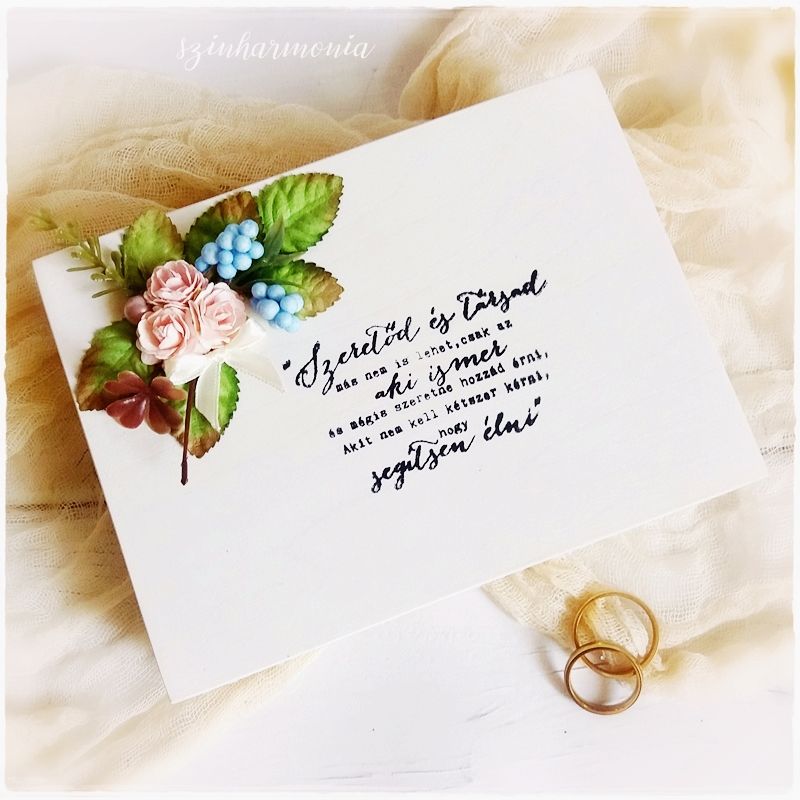 szinharmonia
"Szeretőd és Társad
más nem is lehet,csak az
aki ismer
és mégis szeretne hozzád érni,
Akit nem kell kétszer kérni,
hogy
segítsen élni"